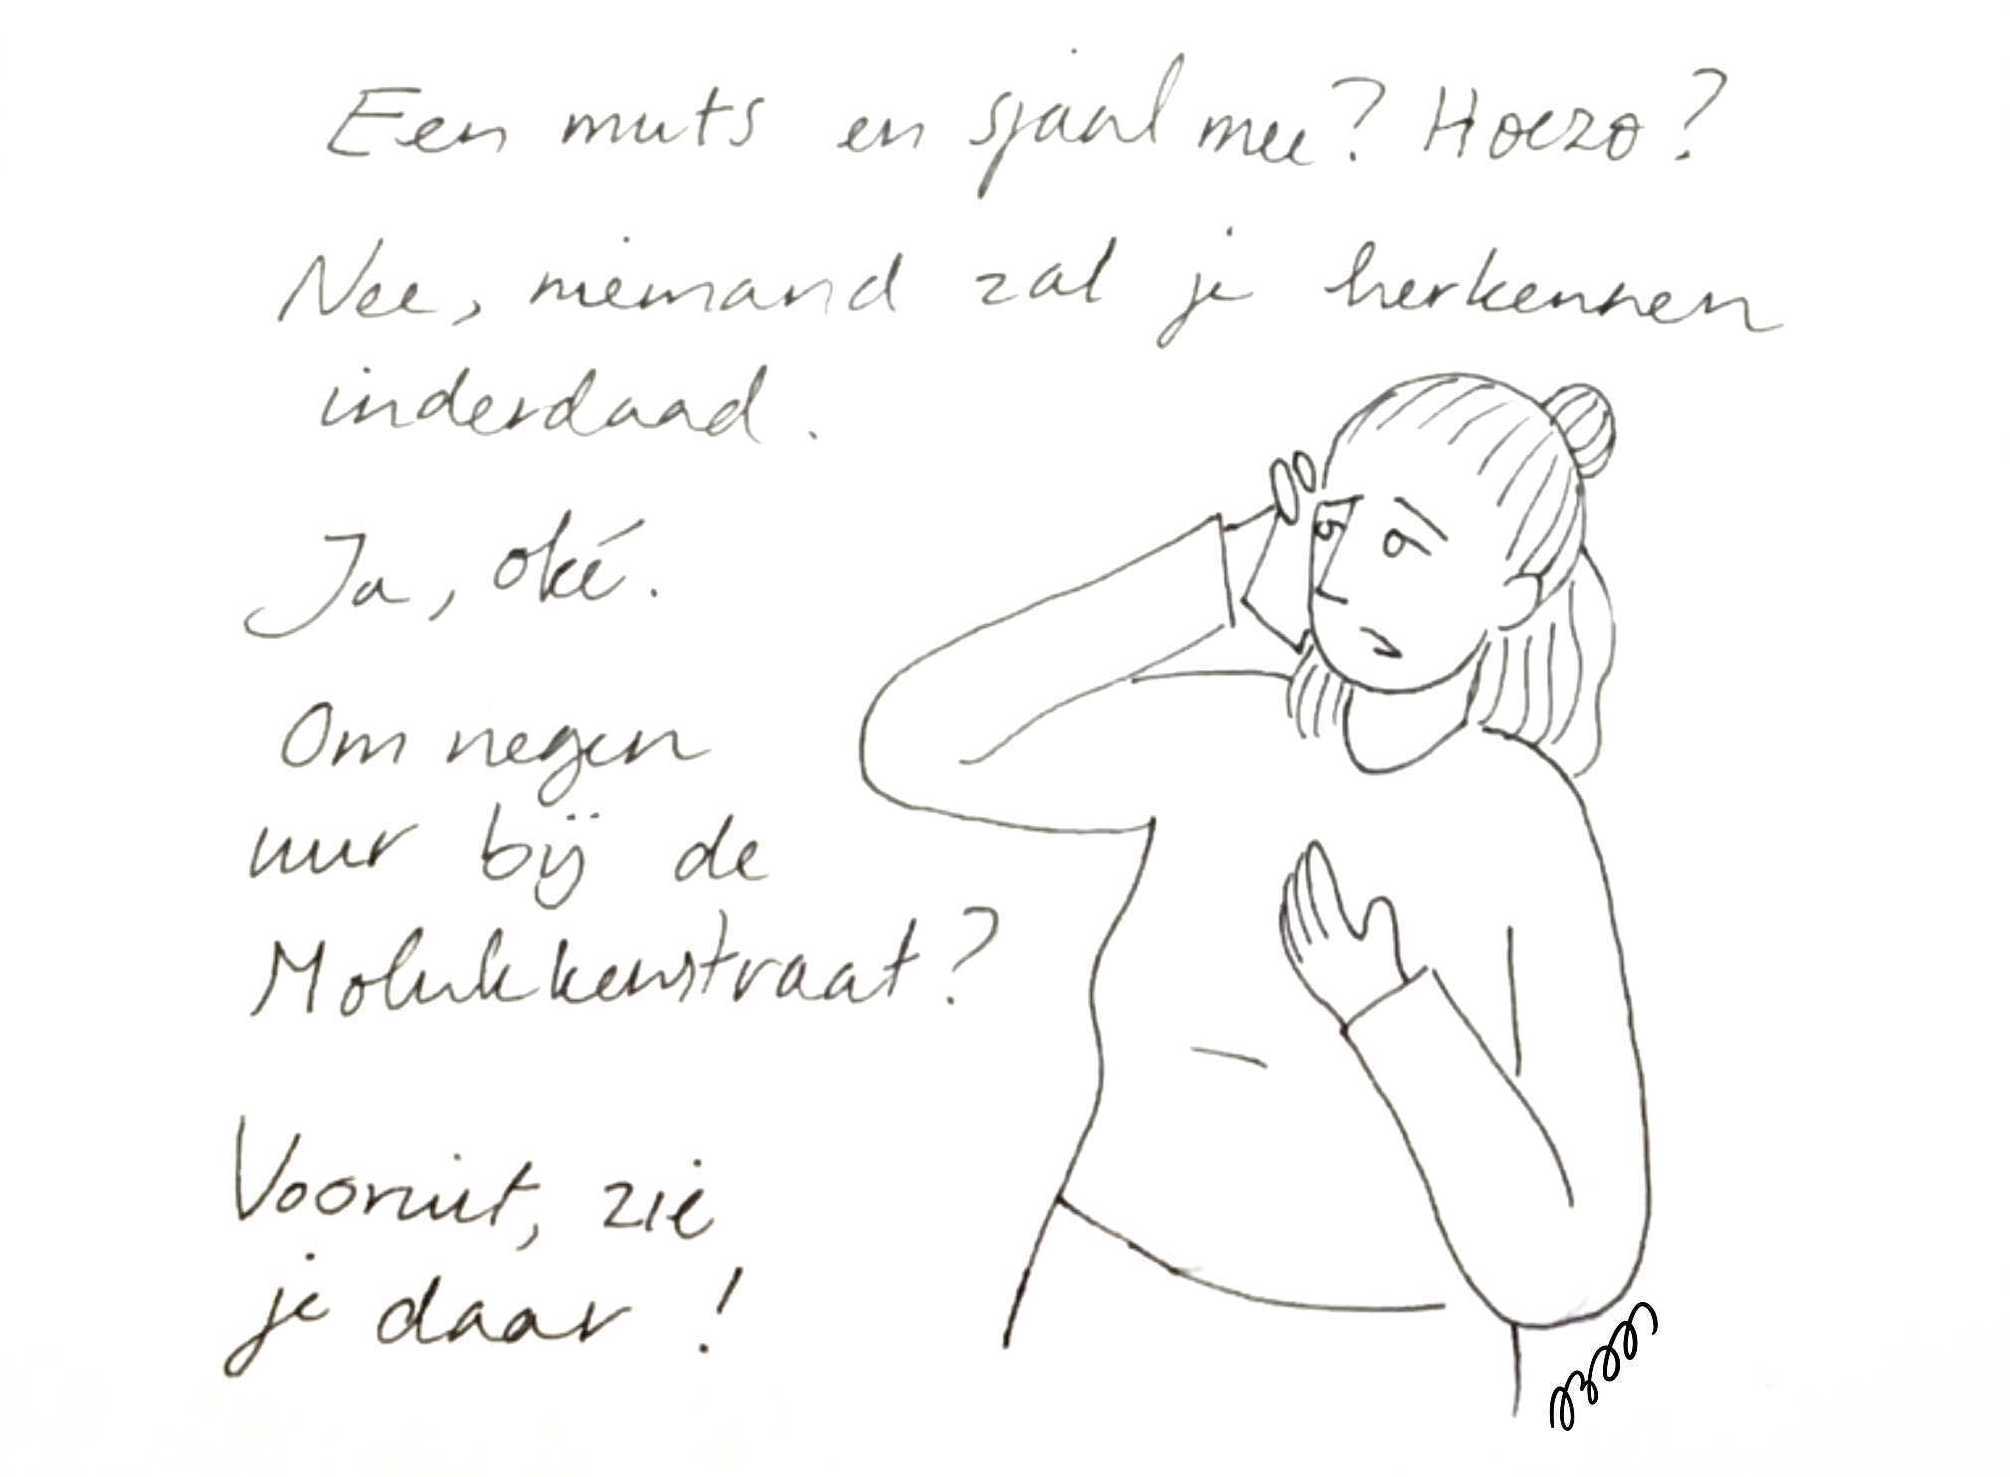 Een muts en sjaal mee? Hoezo?
Nee, niemand zal je herkennen
inderdaad.
Ja, oké.
Om negen
uur bij de
Molukkenstraat?
Vooruit, zie
je daar!